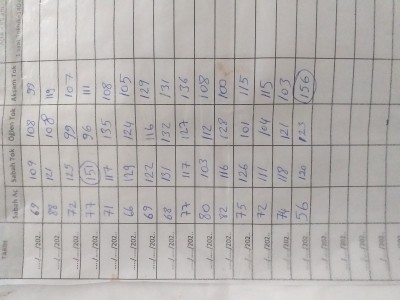 Tarih Sabah Aç Sabah Tok Öğlen Tok Akşam Tok
.../.../202.. 69 109 108 99
.../.../202.. 88 121 108 119
.../.../202.. 72 125 99 107
.../.../202.. 77 151 96 111
.../.../202.. 71 117 135 108
.../.../202.. 66 129 124 105
.../.../202.. 69 122 116 129
.../.../202.. 68 131 132 131
.../.../202.. 77 117 127 136
.../.../202.. 80 103 112 108
.../.../202.. 82 116 128 100
.../.../202.. 75 126 101 115
.../.../202.. 72 111 104 115
.../.../202.. 74 118 121 103
.../.../202.. 56 120 123 156
.../.../202..
.../.../202..
.../.../202..
.../.../202..